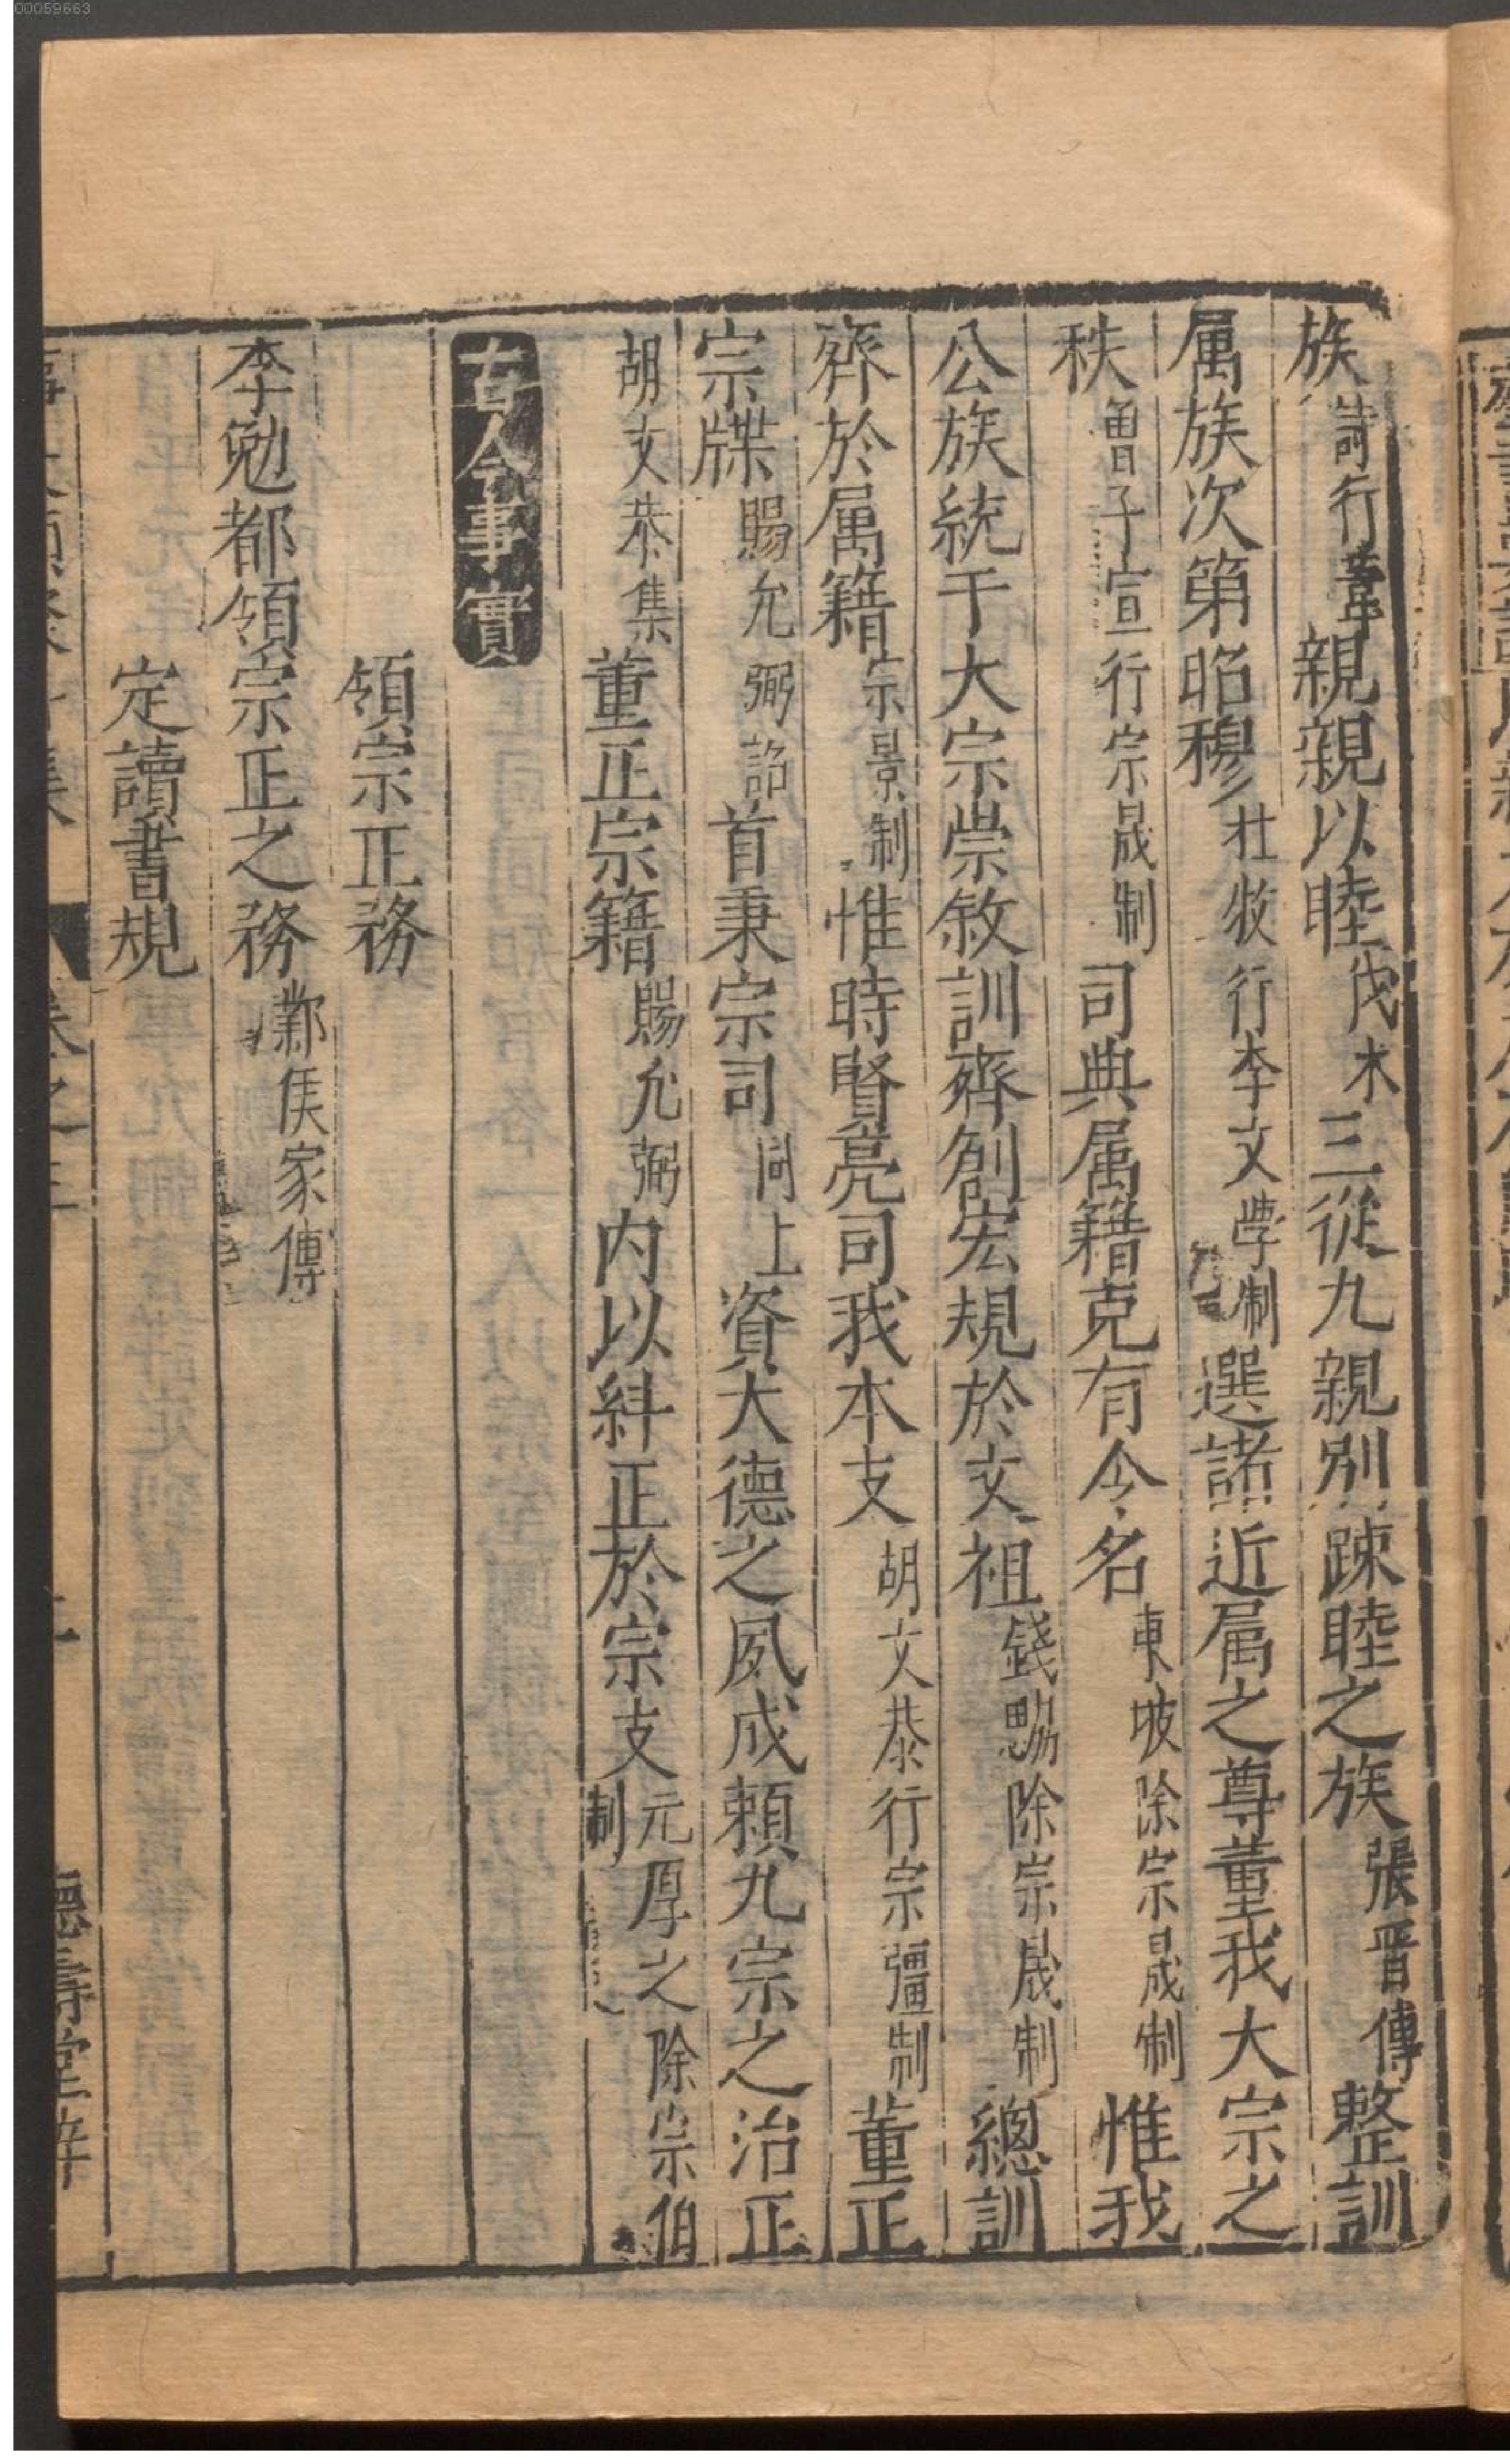 族詩行葦親親以睦伐木三從九親別踈睦之族張晋傳整訓
属族次第昭穆杜牧行李文學制選諸近属之尊董我大宗之
秩曾子宣行宗晟制司典属籍克有令名東坡除宗晟制惟我
公族統于大宗崇敘訓齊創宏規於文祖錢勰除宗晟制總訓
齊於属籍宗景制惟時賢亮司我本支胡文恭行宗彊制董正
宗牒賜允弼詔首秉宗司同上資大德之夙成頼九宗之治正
胡文恭集董正宗籍賜允弼内以糾正於宗支元厚之除宗伯制
古今事實
領宗正務
李勉都領宗正之務鄴侯家傳
定讀書規
卷之三
德壽堂梓
00059663